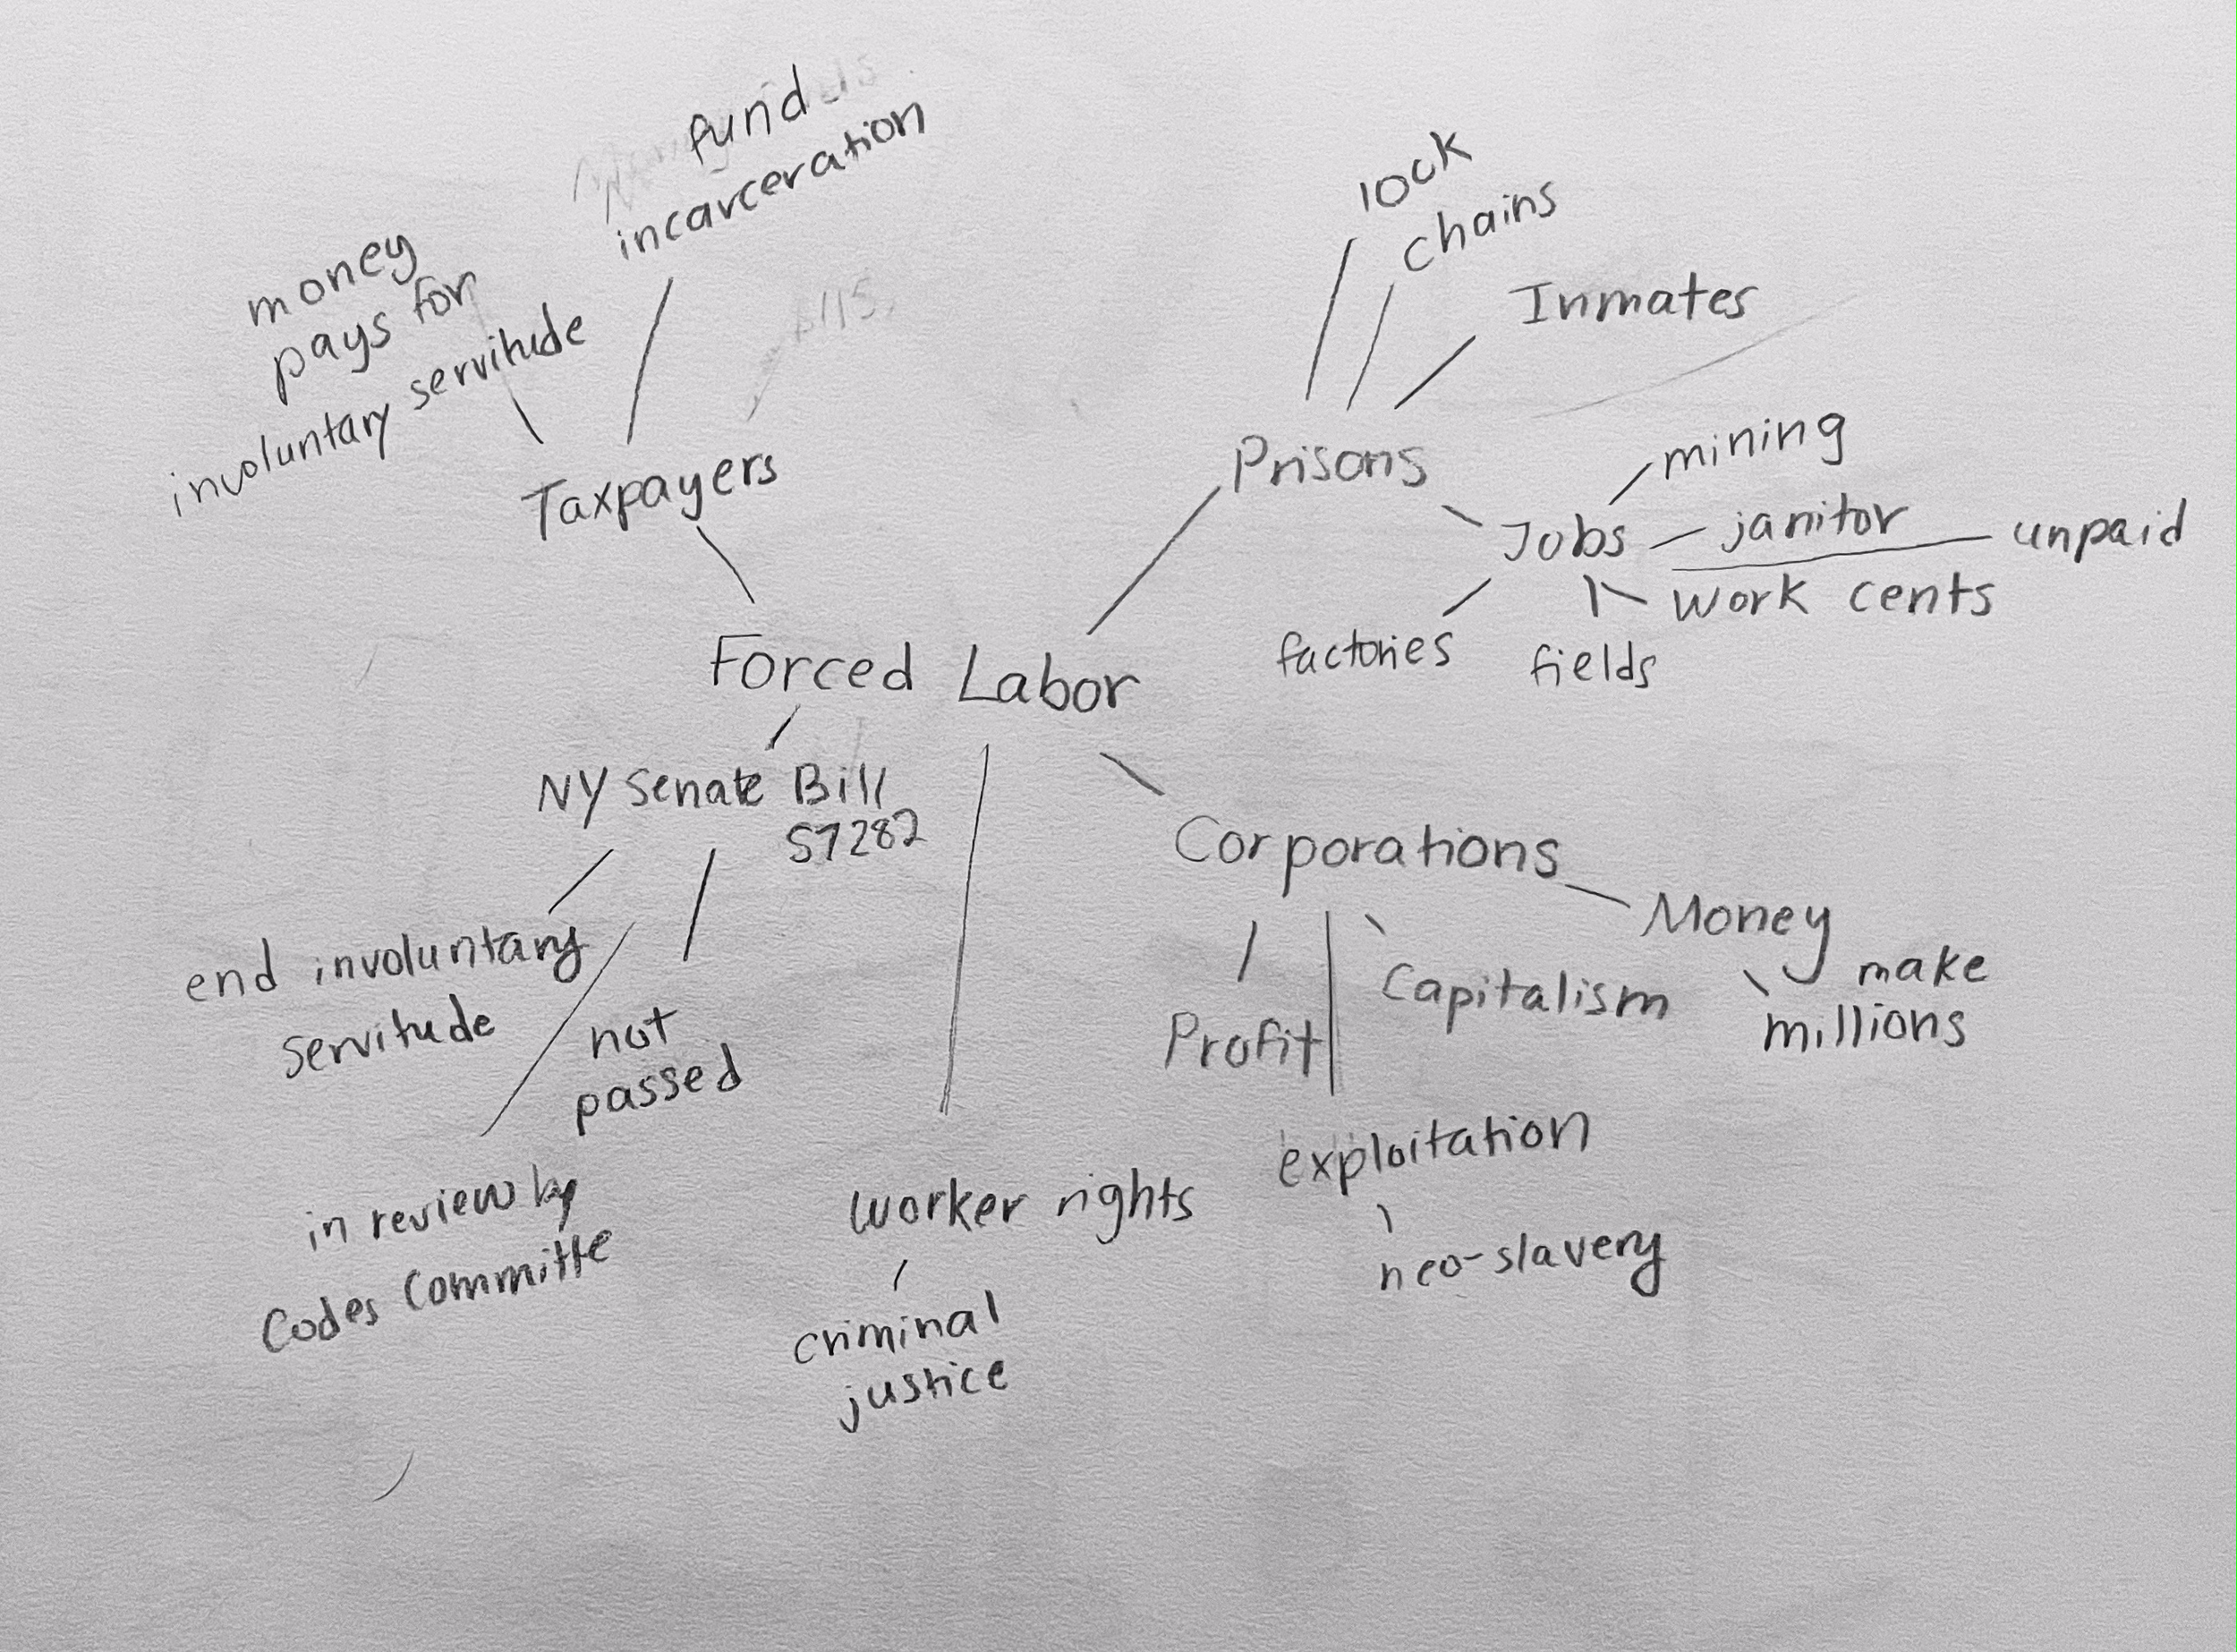 fund
incarceration
money
pays for
involuntary servitude
Taxpayers
lock
chains
Inmates
Prisons
Jobs
mining
janitor
unpaid
work cents
factories
fields
Forced Labor
NY Senate Bill
S7282
end involuntary
servitude
not
passed
in review by
Codes Committe
worker rights
criminal
justice
Corporations
Money
make
millions
Capitalism
Profit
exploitation
neo-slavery